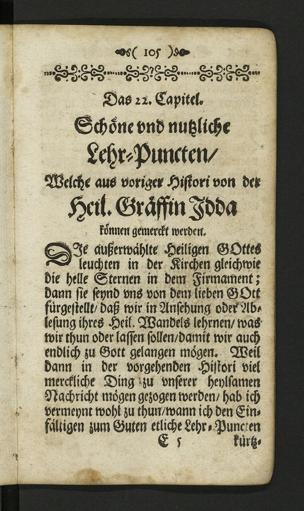 ( 105 )
Das 22. Capitel.
Schöne vnd nutzliche
Lehr-Puncten/
Welche aus voriger Histori von der
Heil. Gräffin Jdda
können gemerckt werden.
DJe außerwählte Heiligen GOttes
leuchten in der Kirchen gleichwie
die helle Sternen in dem Firmament;
dann sie seynd vns von dem lieben GOtt
fürgestellt/ daß wir in Ansehung oder Ab-
lesung ihres Heil. Wandels lehrnen/ was
wir thun oder lassen sollen/ damit wir auch
endlich zu Gott gelangen mögen. Weil
dann in der vorgehenden Histori viel
merckliche Ding zu vnserer heylsamen
Nachricht mögen gezogen werden/ hab ich
vermeynt wohl zu thun/ wann ich den Ein-
fältigen zum Guten etliche Lehr-Puncten
E 5 kürtz-